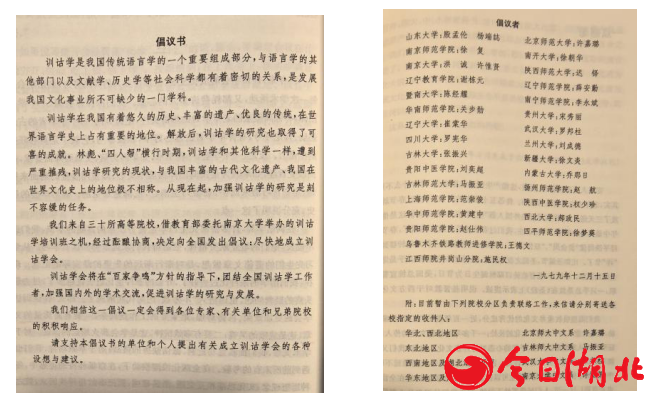 倡议书
训诂学是我国传统语言学的一个重要组成部分，与语言学的其
他部门以及文献学、历史学等社会科学都有着密切的关系，是发展
我国文化事业所不可缺少的一门学科。
训诂学在我国有着悠久的历史、丰富的遗产、优良的传统，在世
界语言学史上占有重要的地位。解放后，训诂学的研究也取得了可
喜的成就。林彪、“四人帮”横行时期，训诂学和其他科学一样，遭到
严重摧残，训诂学研究的现状，与我国丰富的古代文化遗产、我国在
世界文化史上的地位极不相称。从现在起，加强训诂学的研究是刻
不容缓的任务。
我们来自三十所高等院校，借教育部委托南京大学举办的训诂
学培训班之机，经过酝酿协商，决定向全国发出倡议：尽快地成立训
诂学会。
训诂学会将在“百家争鸣”方针的指导下，团结全国训诂学工作
者，加强国内外的学术交流，促进训诂学的研究与发展。
我们相信这一倡议一定会得到各位专家、有关单位和兄弟院校
的积极响应。
请支持本倡议书的单位和个人提出有关成立训诂学会的各种
设想与建议。
倡议者
山东大学：殷孟伦 杨端志
南京师范学院：徐 复
南京大学：洪 诚 许惟贤
辽宁教育学院：谢栋元
暨南大学：陈经耀
华南师范学院：关步勋
辽宁大学：崔棠华
四川大学：罗宪华
吉林大学：张振兴
贵阳中医学院：刘奕超
吉林师范大学：马振亚
上海师范学院：范崇俊
华中师范学院：黄建宇
贵阳师范学院：赵仕伟
乌鲁木齐铁路教师进修学院：王德文
江西师院井岗山分院：施民权
北京师范大学：许嘉璐
南开大学：徐朝华
陕西师范大学：迟 铎
辽宁师范学院：薛安勤
南宁师范学院：李永斌
贵州大学：宋秀丽
武汉大学：罗邦柱
兰州大学：刘成德
新疆大学：徐文炎
内蒙古大学：乔那日
扬州师范学院：赵 航
陕西中医学院：权少珍
西北大学：郝政民
四平师范学院：徐梦葵
一九七九年十二月十五日
附：目前暂由下列院校分区负责联络工作，来信请分别寄送各
校指定的收件人：
华北、西北地区 北京师大中文系 许嘉璐
东北地区 吉林师大中文系 马振亚
西南地区及湖北
华东地区及
今日湖北